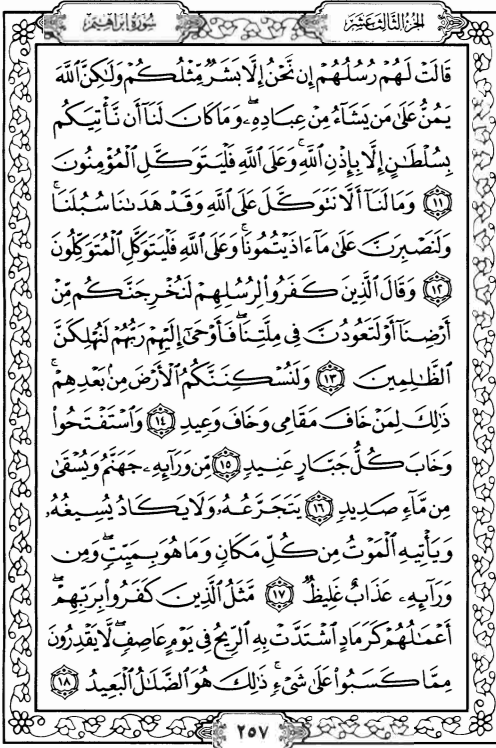 سُورَةُ إِبْرَاهِيم
الجُزْءُ الثَّالِثَ عَشَرَ
قَالَتْ لَهُمْ رُسُلُهُمْ إِن نَّحْنُ إِلَّا بَشَرٌ مِّثْلُكُمْ وَلَٰكِنَّ ٱللَّهَ
يَمُنُّ عَلَىٰ مَن يَشَآءُ مِنْ عِبَادِهِۦ ۖ وَمَا كَانَ لَنَآ أَن نَّأْتِيَكُم
بِسُلْطَٰنٍ إِلَّا بِإِذْنِ ٱللَّهِ ۚ وَعَلَى ٱللَّهِ فَلْيَتَوَكَّلِ ٱلْمُؤْمِنُونَ
١١ وَمَا لَنَآ أَلَّا نَتَوَكَّلَ عَلَى ٱللَّهِ وَقَدْ هَدَىٰنَا سُبُلَنَا ۚ
وَلَنَصْبِرَنَّ عَلَىٰ مَآ ءَاذَيْتُمُونَا ۚ وَعَلَى ٱللَّهِ فَلْيَتَوَكَّلِ ٱلْمُتَوَكِّلُونَ
١٢ وَقَالَ ٱلَّذِينَ كَفَرُوا۟ لِرُسُلِهِمْ لَنُخْرِجَنَّكُم مِّنْ
أَرْضِنَآ أَوْ لَتَعُودُنَّ فِى مِلَّتِنَا ۖ فَأَوْحَىٰٓ إِلَيْهِمْ رَبُّهُمْ لَنُهْلِكَنَّ
ٱلظَّٰلِمِينَ ١٣ وَلَنُسْكِنَنَّكُمُ ٱلْأَرْضَ مِنۢ بَعْدِهِمْ ۚ
ذَٰلِكَ لِمَنْ خَافَ مَقَامِى وَخَافَ وَعِيدِ ١٤ وَٱسْتَفْتَحُوا۟
وَخَابَ كُلُّ جَبَّارٍ عَنِيدٍ ١٥ مِّن وَرَآئِهِۦ جَهَنَّمُ وَيُسْقَىٰ
مِن مَّآءٍ صَدِيدٍ ١٦ يَتَجَرَّعُهُۥ وَلَا يَكَادُ يُسِيغُهُۥ
وَيَأْتِيهِ ٱلْمَوْتُ مِن كُلِّ مَكَانٍ وَمَا هُوَ بِمَيِّتٍ ۖ وَمِن
وَرَآئِهِۦ عَذَابٌ غَلِيظٌ ١٧ مَّثَلُ ٱلَّذِينَ كَفَرُوا۟ بِرَبِّهِمْ ۖ
أَعْمَٰلُهُمْ كَرَمَادٍ ٱشْتَدَّتْ بِهِ ٱلرِّيحُ فِى يَوْمٍ عَاصِفٍ ۖ لَّا يَقْدِرُونَ
مِمَّا كَسَبُوا۟ عَلَىٰ شَىْءٍ ۚ ذَٰلِكَ هُوَ ٱلضَّلَٰلُ ٱلْبَعِيدُ ١٨
٢٥٧